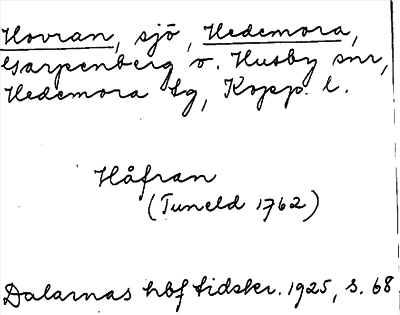 Hovran, sjö, Hedemora,
Garpenberg o. Husby snr,
Hedemora tg, Kopp. l.
Håfran
(Tuneld 1762)
Dalarnas hbf tidskr. 1925, s. 68